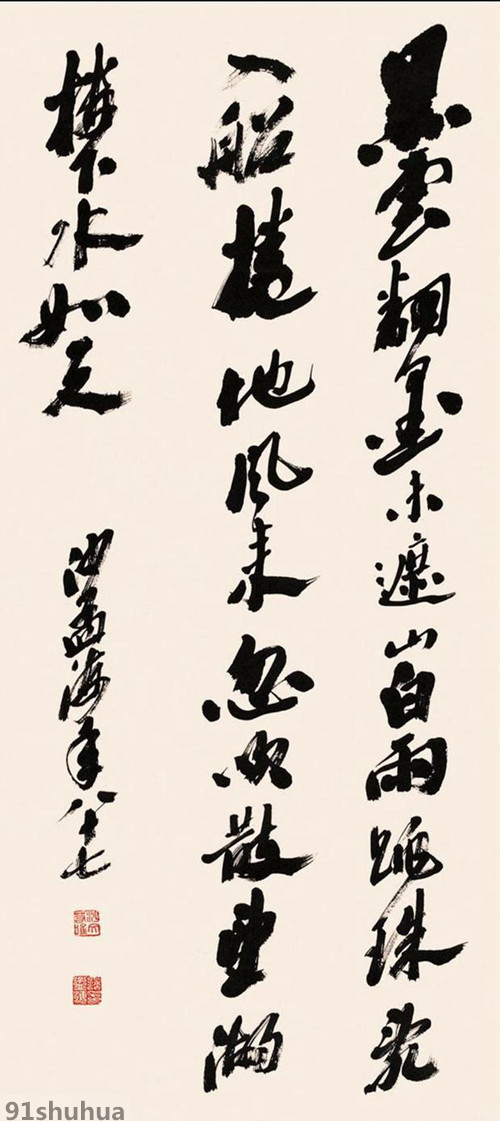 黑雲翻墨未遮山白雨跳珠亂
入船捲地風來忽吹散望湖
樓下水如天
沙孟海年八十七
91shuhua